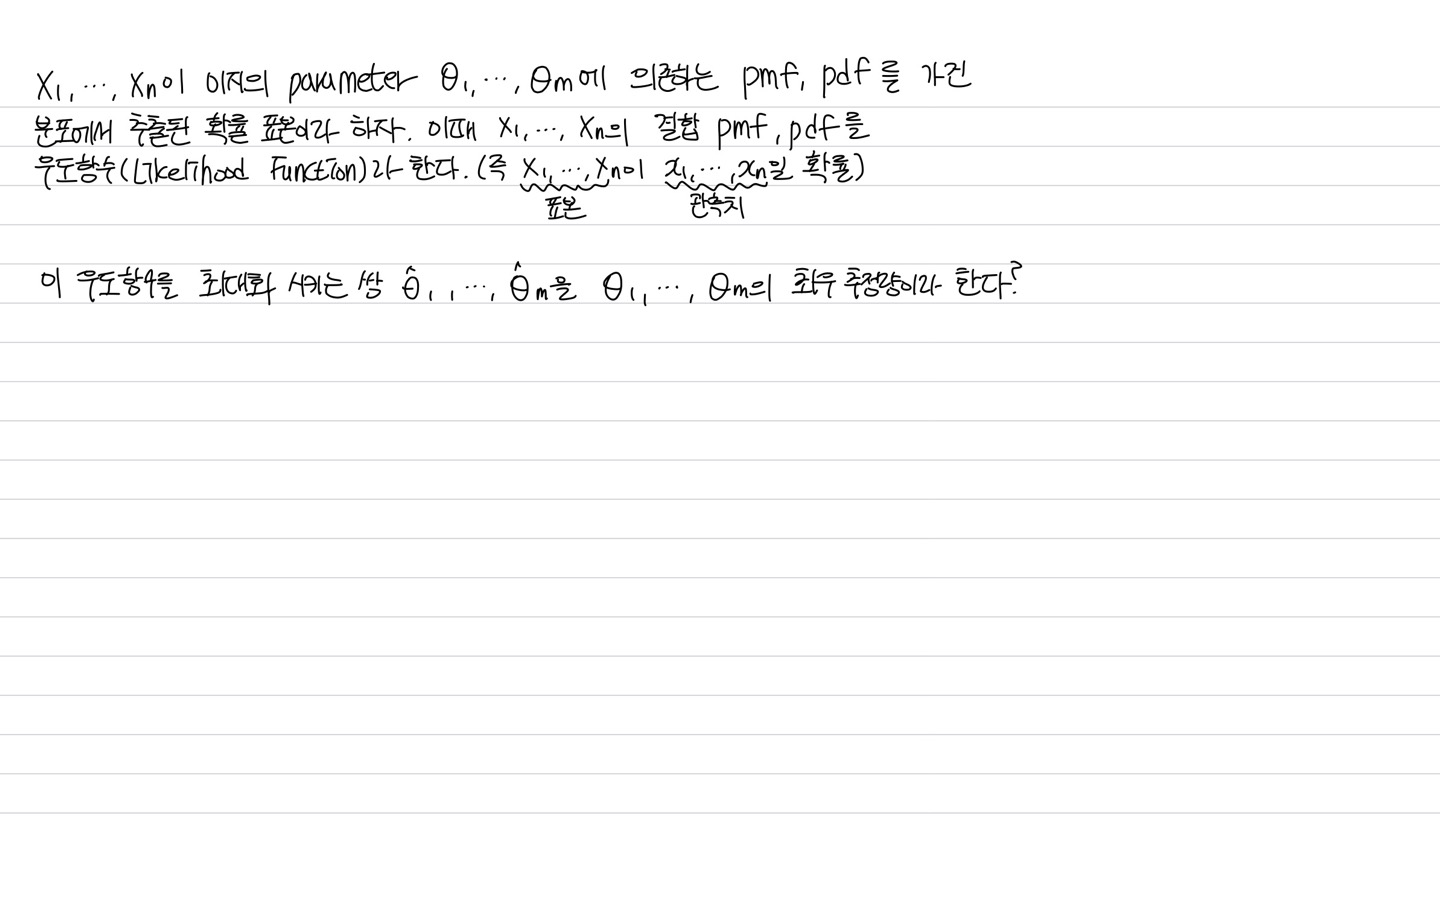 X₁, ⋯, Xn이 미지의 parameter θ₁, ⋯, θm에 의존하는 pmf, pdf를 가진
분포에서 추출된 확률 표본이라 하자. 이때 X₁, ⋯, Xn의 결합 pmf, pdf를
우도함수(Likelihood Function)라 한다. (즉 X₁, ⋯, Xn이 x₁, ⋯, xn일 확률)
표본 관측치
이 우도함수를 최대화 시키는 쌍 θ̂₁, ⋯, θ̂m을 θ₁, ⋯, θm의 최우 추정량이라 한다?